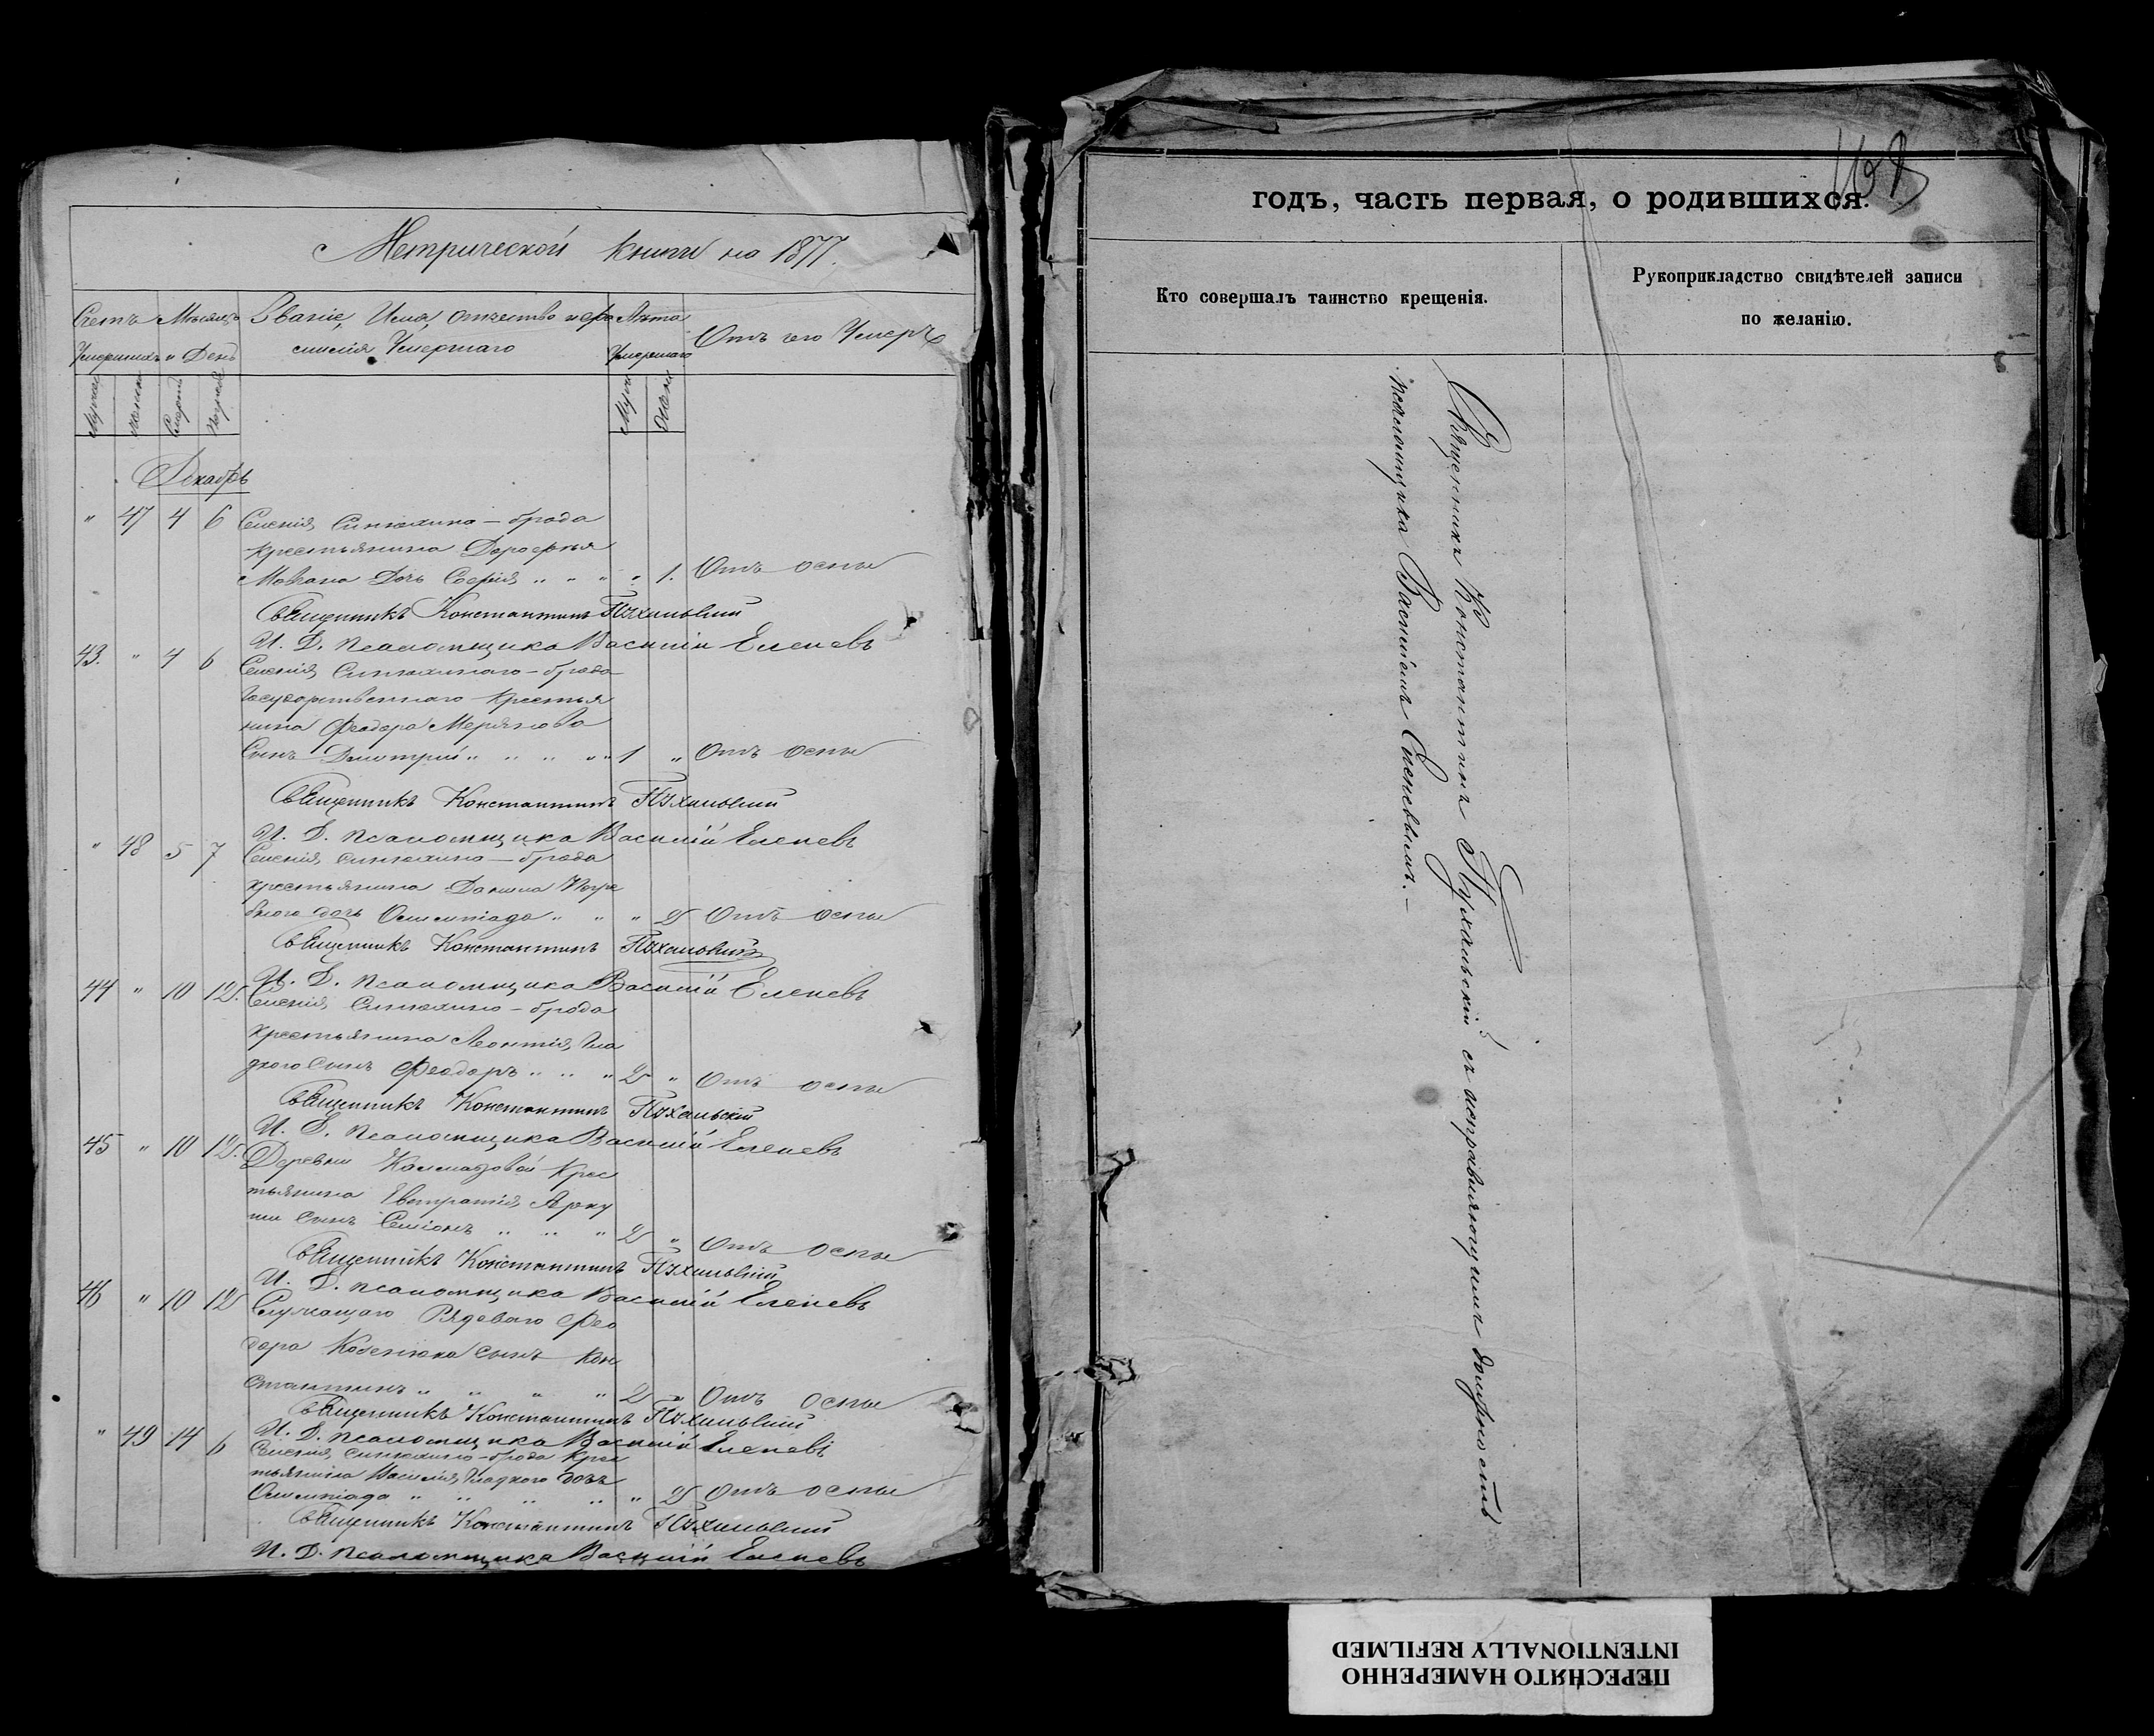 Метрической книги на 1877.
Счетъ Умершихъ
Мѣсяцъ и День
Званіе, Имя, отчество и фа
милія Умершаго
Лѣта Умершаго
Отъ чего Умеръ
Декабрь
" 47 4 6 Селенія Синюхина-брода
крестьянина Дорофея
дочь Софія " " " " 1. Отъ оспы
Священникъ Константинъ Пухальскій
И. Д. псаломщика Василій Еленевъ
43. " 4 6 Селенія Синюхиного-брода
Государственнаго крестья
нина Феодора
Сынъ Димитрій " " " " 1 " Отъ оспы
Священникъ Константинъ Пухальскій
И. Д. псаломщика Василій Еленевъ
" 48 5 7 Селенія Синюхина-брода
крестьянина Данила Погре
бного дочь Олимпіада " " " 2 Отъ оспы
Священникъ Константинъ Пухальскій
И. Д. псаломщика Василій Еленевъ
44 " 10 12. Селенія Синюхино-брода
крестьянина Леонтія Гла
дкого Сынъ Феодоръ " " " 2 " Отъ оспы
Священникъ Константинъ Пухальскій
И. Д. псаломщика Василій Еленевъ
45 " 10 12. Деревни Крес
тьянина Евстратія
сынъ Симіонъ " " " 2 " Отъ оспы
Священникъ Константинъ Пухальскій
И. Д. псаломщика Василій Еленевъ
46 " 10 12 Служащаго Рядового Фео
дора сынъ Кон
стантинъ " " " " 2 " Отъ оспы
Священникъ Константинъ Пухальскій
И. Д. псаломщика Василій Еленевъ
" 49 14 6 Селенія Синюхино-брода крес
тьянина Василія Гладкого дочь
Олимпіада " " " " " 2 Отъ оспы
Священникъ Константинъ Пухальскій
И. Д. псаломщика Василій Еленевъ
годъ, часть первая, о родившихся.
Кто совершалъ таинство крещенія.
Рукоприкладство свидѣтелей записи
по желанію.
Священникъ Константинъ Пухальскій съ исправляющимъ должность
псаломщика Василіемъ Еленевымъ.-
ПЕРЕСНЯТО НАМЕРЕННО
INTENTIONALLY REFILMED